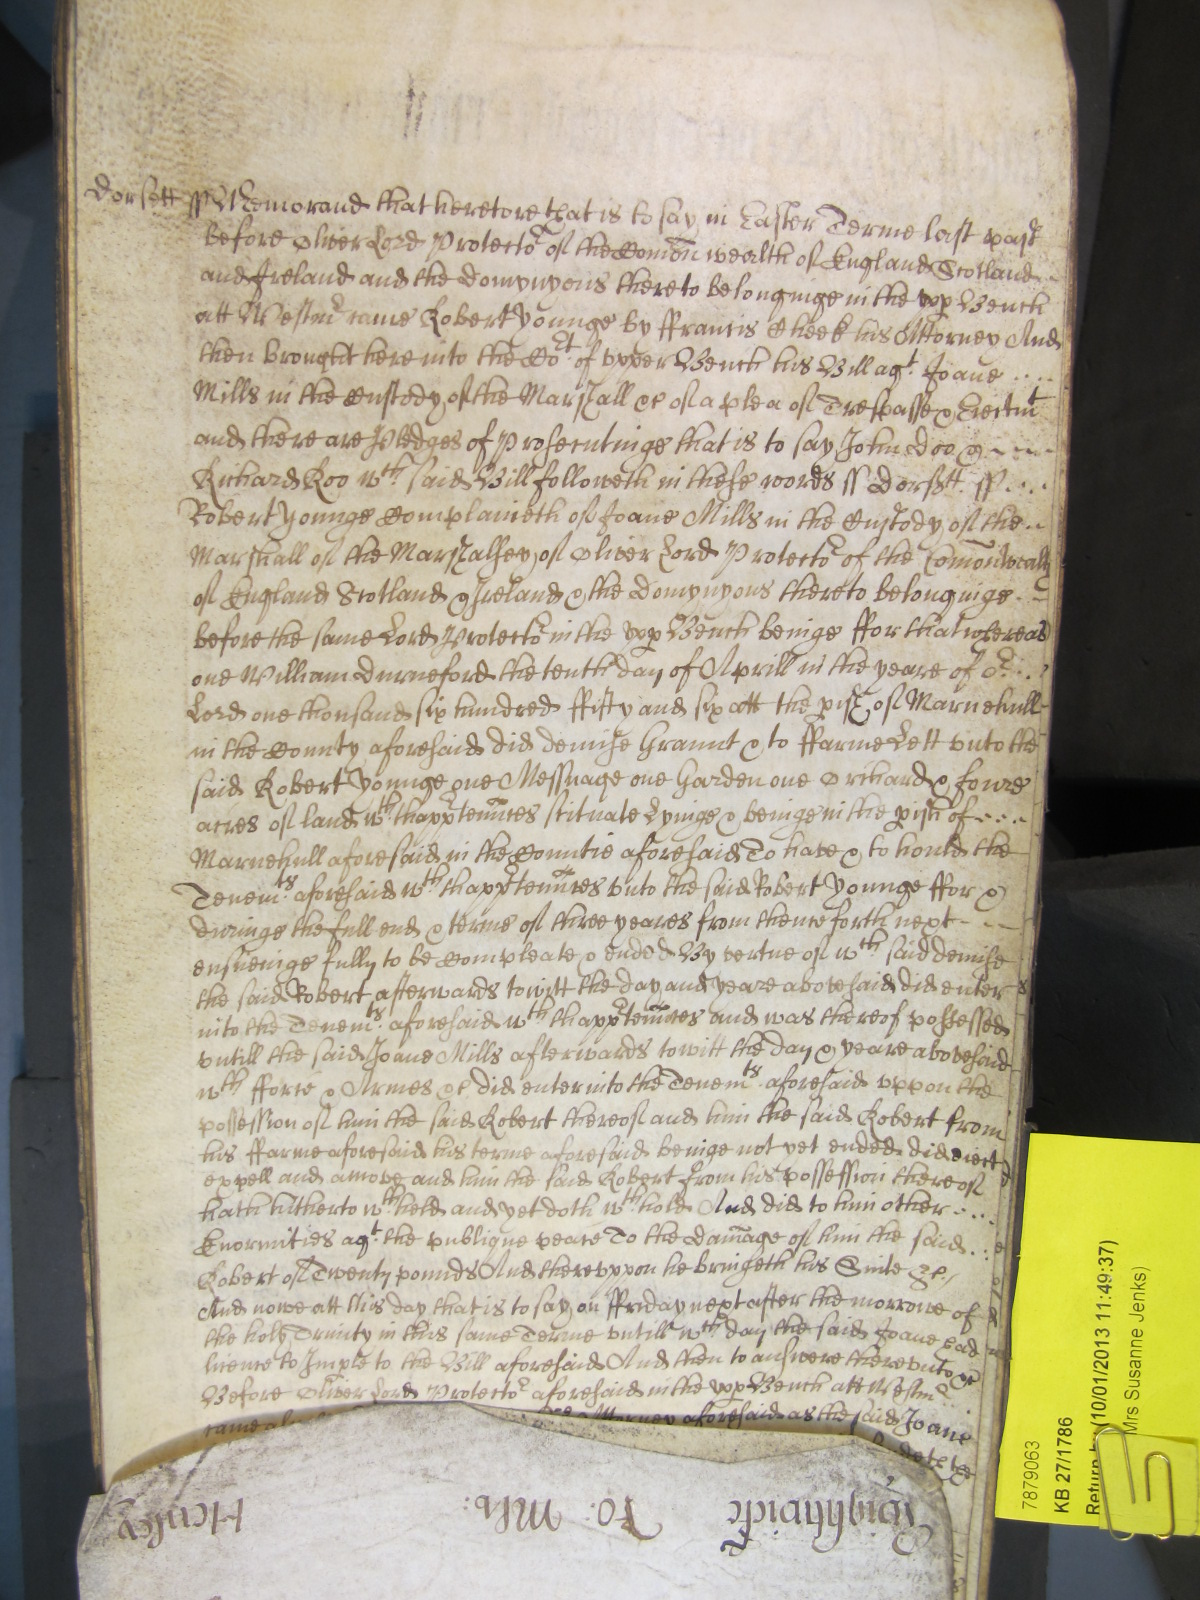 Dorsett ss Memorand that heretofore that is to say in Easter Terme last past
before Oliver Lord Protector of the Comon wealth of England Scotland
and Ireland and the domynyons thereto belonginge in the upp Bench
att Westmr came Robert Younge by Francis Cheek his Attorney And
then brought here into the Cort of upper Bench his Bill agt Joane ....
Mills in the Custody of the Marshall &c of a plea of Trespasse & Eiectmt
and there are Pledges of Prosecutinge that is to say John Doo & ---
Richard Roo wch said Bill followeth in these words ss Dorsett ss ....
Robert Younge Complaineth of Joane Mills in the Custody of the --
Marshall of the Marshalsey of Oliver Lord Protector of the Comonwealth
of England Scotland & Ireland & the domynyons thereto belonginge --
before the same Lord Protector in the upp Bench beinge ffor that whereas
one William durneford the tenth day of Aprill in the yeare of or ...
Lord one thousand six hundred ffifty and six att the pish of Marnehull
in the County aforesaid did demise Graunt & to ffarme Lett unto the
said Robert Younge one Messuage one Garden one Orchard & foure
acres of land wth thapptennces scituate Lyinge & beinge in the pish of ----
Marnehull aforesaid in the Countie aforesaid To have & to hould the
Tenemts aforesaid wth thapptennces unto the said Robert Younge ffor &
duringe the full end & terme of three yeares from thenceforth next ---
ensueinge fully to be Compleate & ended By vertue of wch said demise
the said Robert afterwards towitt the day and yeare abovesaid did enter
into the Tenemts aforesaid wth thapptennces and was thereof possessed
untill the said Joane Mills afterwards towitt the day & yeare abovesaid
wth fforce & Armes &c did enter into the Tenemts aforesaid uppon the
possession of him the said Robert thereof and him the said Robert from
his ffarme aforesaid his terme aforesaid beinge not yet ended did eiect
expell and amove and him the said Robert from his possession thereof
hath hitherto wthheld and yet doth wthhold And did to him other ....
Enormities agt the publique peace To the damage of him the said ...
Robert of Twenty pounds And thereuppon he bringeth his Suite &c
And nowe att this day that is to say on ffriday next after the morrowe of
the holy Trinity in this same Terme untill wch day the said Joane had
licence to Imple to the Bill aforesaid And then to answere thereunto &c
Before Oliver Lord Protector aforesaid in the upp Bench att Westmr
came Attorney aforesaid as the said Joane
Henley To: Mils
7879063
KB 27/1786
Return (10/01/2013 11:49:37)
Mrs Susanne Jenks)